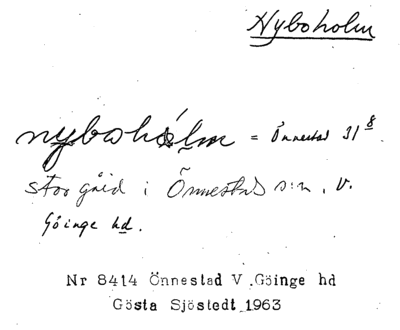 Nyboholm
nybohólm = Önnestad 31⁸
stor gård i Önnestads s:n, V.
Göinge hd.
Nr 8414 Önnestad V Göinge hd
Gösta Sjöstedt 1963